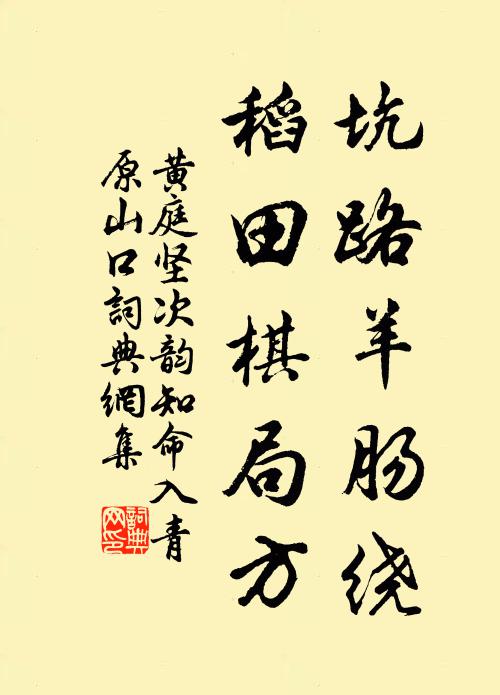 坑路羊肠绕
稻田棋局方
黄庭坚次韵知命入青
原山口詞典網集
詞典
网印